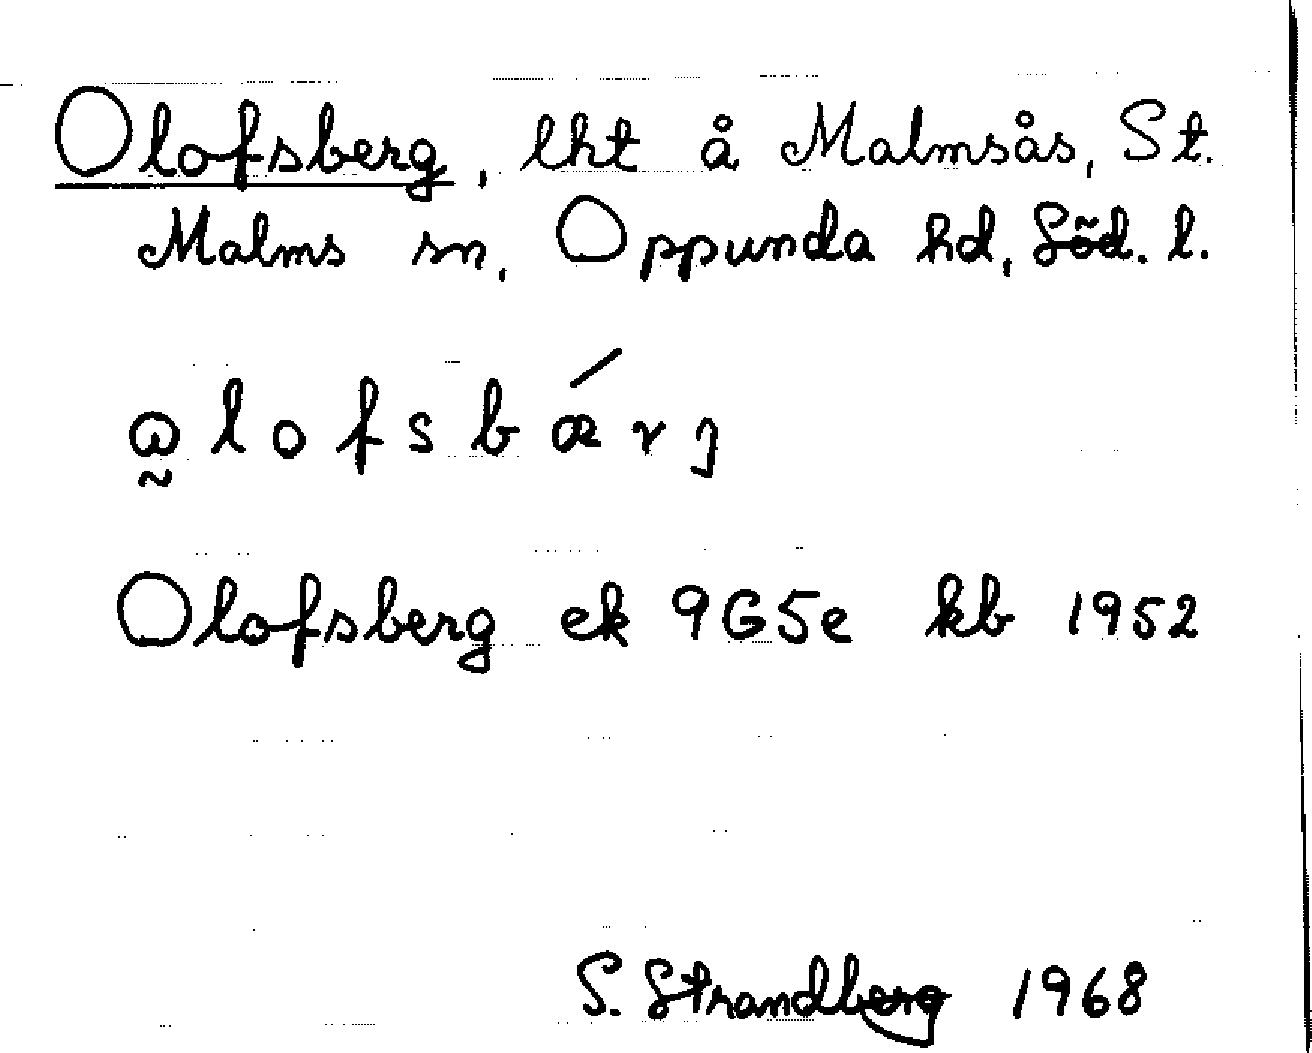 Olofsberg, lht å Malmsås, St.
Malms sn, Oppunda hd, Söd. l.
Olofsberg ek 9G5e kb 1952
S. Strandberg 1968